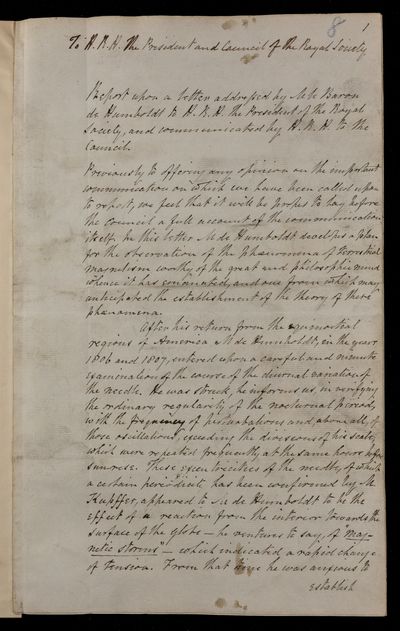 8
1
To H.R.H. The President and Council of the Royal Society
Report upon a letter addressed by M. le Baron
de Humboldt to H.R.H. the President of the Royal
Society, and communicated by H.R.H. to the
Council.
Previously to offering any opinion on the important
communication on which we have been called upon
to report, we feel that it will be proper to lay before
the Council a full account of the communication
itself. In this letter M. de Humboldt developes a plan
for the observation of the phænomena of terrestrial
magnetism worthy of the great and philosophic mind
whence it has emanated, and one from which may be
anticipated the establishment of the theory of these
phænomena.
After his return from the equinoctial
regions of America M. de Humboldt, in the years
1806 and 1807, entered upon a careful and minute
examination of the course of the diurnal variation of
the needle. He was struck, he informs us, in verifying
the ordinary regularity of the nocturnal period,
with the frequency of perturbations and, above all, of
those oscillations, exceeding the divisions of his scale,
which were repeated frequently at the same hours before
sunrise. These eccentricities of the needle, of which
a certain periodicity has been confirmed by M.
Kupffer, appeared to M. de Humboldt to be the
effect of a reaction from the interior towards the
surface of the globe – he ventures to say, of "mag-
netic storms" – which indicated a rapid change
of tension. From that time he was anxious to
establish